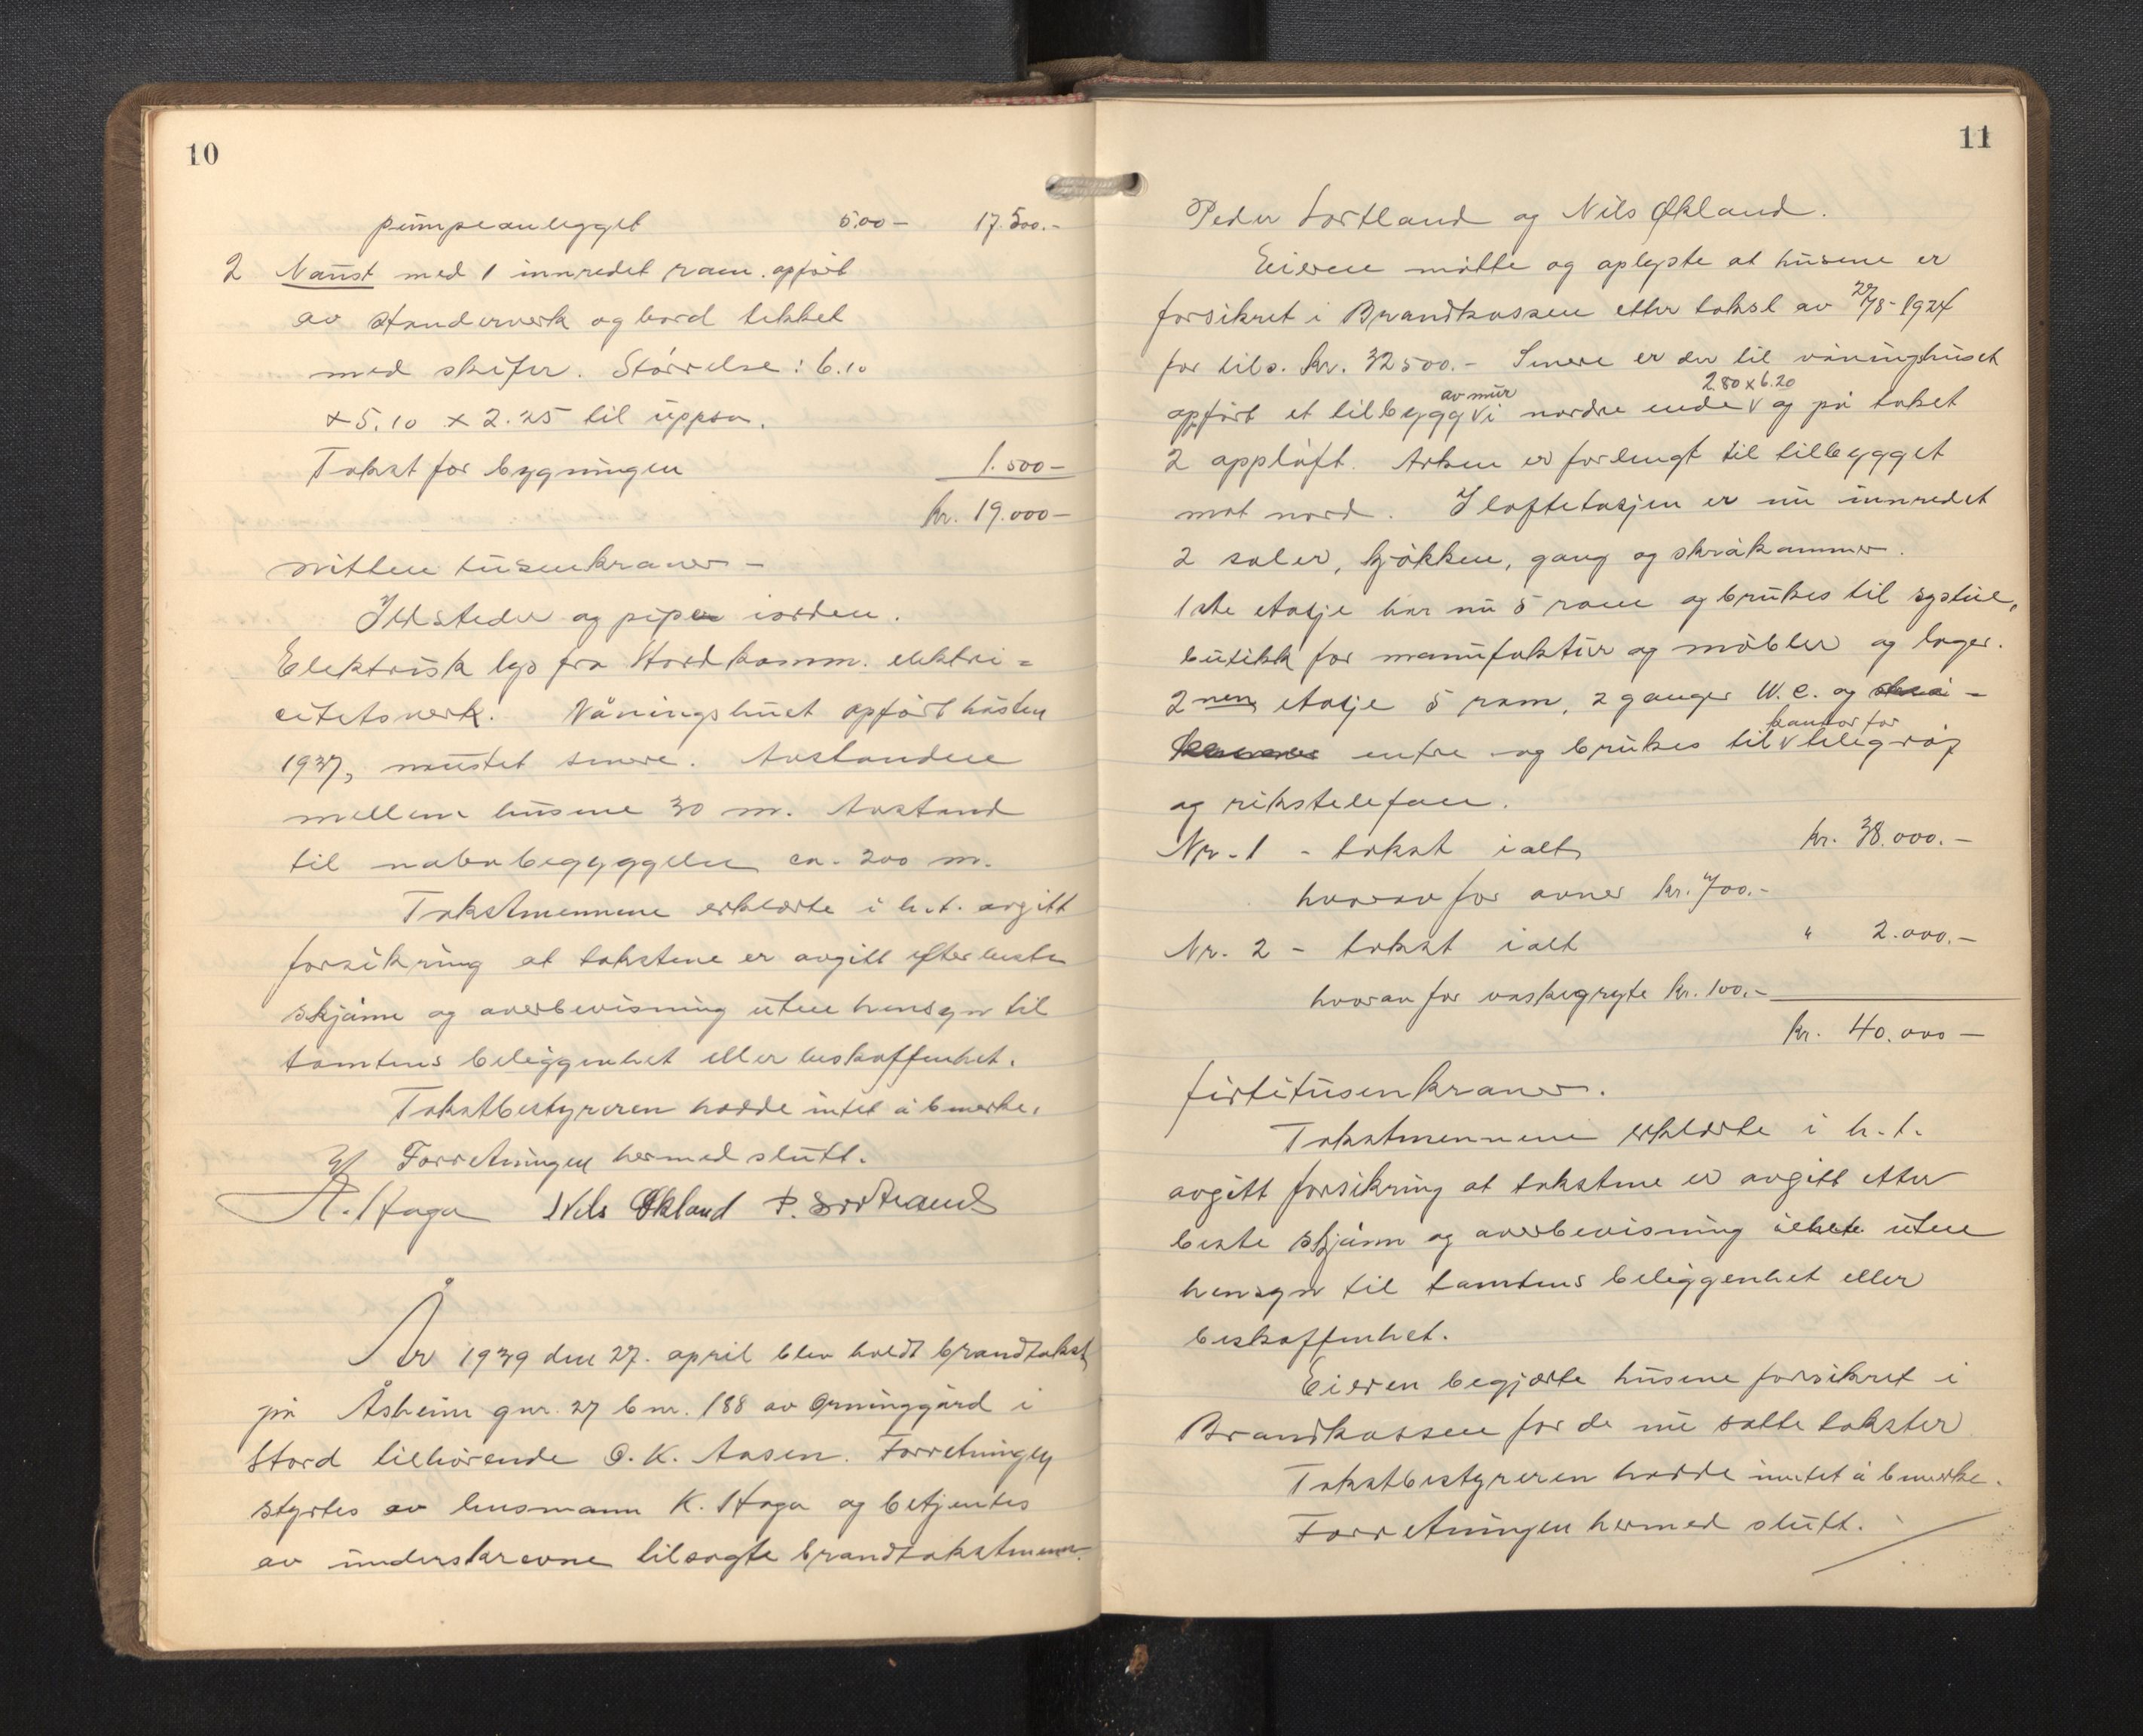 10
pumpeanlegget 500 – 17.500.–
2 Naust med 1 innredet rom. opført
av standerverk og bord tekket
med skifer. Størrelse: 6.10
x 5.10 x 2.25 til uppsa.
Takst for bygningen 1.500 –
kr. 19.000 –
nitten tusenkroner –
Ildsteder og piper iorden.
Elektrisk lys fra Stord komm. elektri=
citetsverk. Våningshuset opført høsten
1937, naustet senere. Avstanden
mellem husene 30 m. Avstand
til nabobebyggelse ca. 200 m.
Takstmennene erklærte i h.t. avgitt
forsikring at takstene er avgitt efter beste
skjønn og overbevisning uten hensyn til
tomtens beliggenhet eller beskaffenhet.
Takstbestyreren hadde intet å bmerke.
Forretningen hermed slutt.
K. Haga Nils Økland P. Sortland
År 1939 den 27. april blev holdt brandtakst
på Åsheim gnr. 27 bnr. 188 av Orninggård i
Stord tilhørende O. K. Aasen. Forretningen
styrtes av lensmann K. Haga og betjentes
av underskrevne tilsagte brandtakstmenn.
11
Peder Sortland og Nils Økland.
Eieren møtte og oplyste at husene er
forsikret i Brandkassen etter takst av 27/8-1924
for tils. kr. 32500.– Senere er der til våninghuset
av mur 2.80 x 6.20
opført et tilbygg v i nordre ende v og på taket
2 oppløft. Arken er forlengt til tilbygget
mot nord. I loftetasjen er nu innredet
2 saler, kjøkken, gang og skråkammer.
1ste etasje har nu 5 rom og brukes til systue,
butikk for manufaktur og møbler og lager.
2nen etasje 5 rom, 2 ganger W.C. og skrå-
kontor for
kammer entre og brukes til v telegraf
og rikstelefon.
Nr. 1 – takst ialt kr. 38.000.–
hvorav for ovner kr. 700.–
Nr. 2 – takst ialt " 2.000.–
hvorav for vaskegryte kr. 100.–
kr. 40.000 –
førtitusenkroner.
Takstmennene erklærte i h.t.
avgitt forsikring at takstene er avgitt etter
beste skjønn og overbevisning uten
hensyn til tomtens beliggenhet eller
beskaffenhet.
Eieren begjærte husene forsikret i
Brandkassen for de nu satte takster
Takstbestyreren hadde intet å bmerke.
Forretningen hermed slutt.